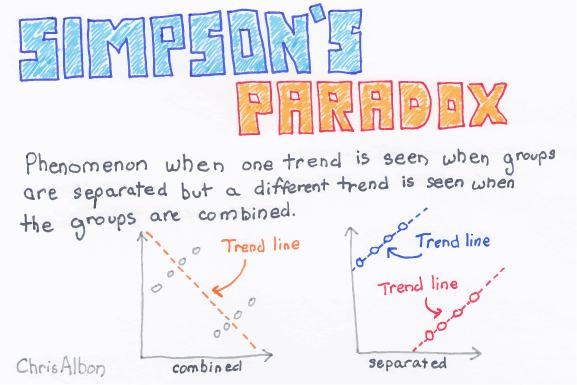 SIMPSON'S
PARADOX
Phenomenon when one trend is seen when groups
are separated but a different trend is seen when
the groups are combined.
Trend line
Trend line
Trend line
combined
separated
ChrisAlbon